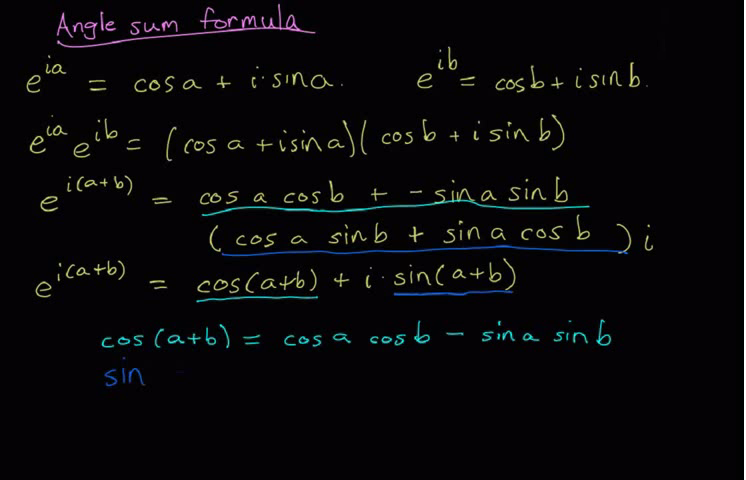 Angle sum formula
e^{ia} = cos a + i · sin a. e^{ib} = cos b + i sin b.
e^{ia} e^{ib} = (cos a + i sin a)(cos b + i sin b)
e^{i(a+b)} = cos a cos b + - sin a sin b
(cos a sin b + sin a cos b) i
e^{i(a+b)} = cos(a+b) + i · sin(a+b)
cos(a+b) = cos a cos b - sin a sin b
sin